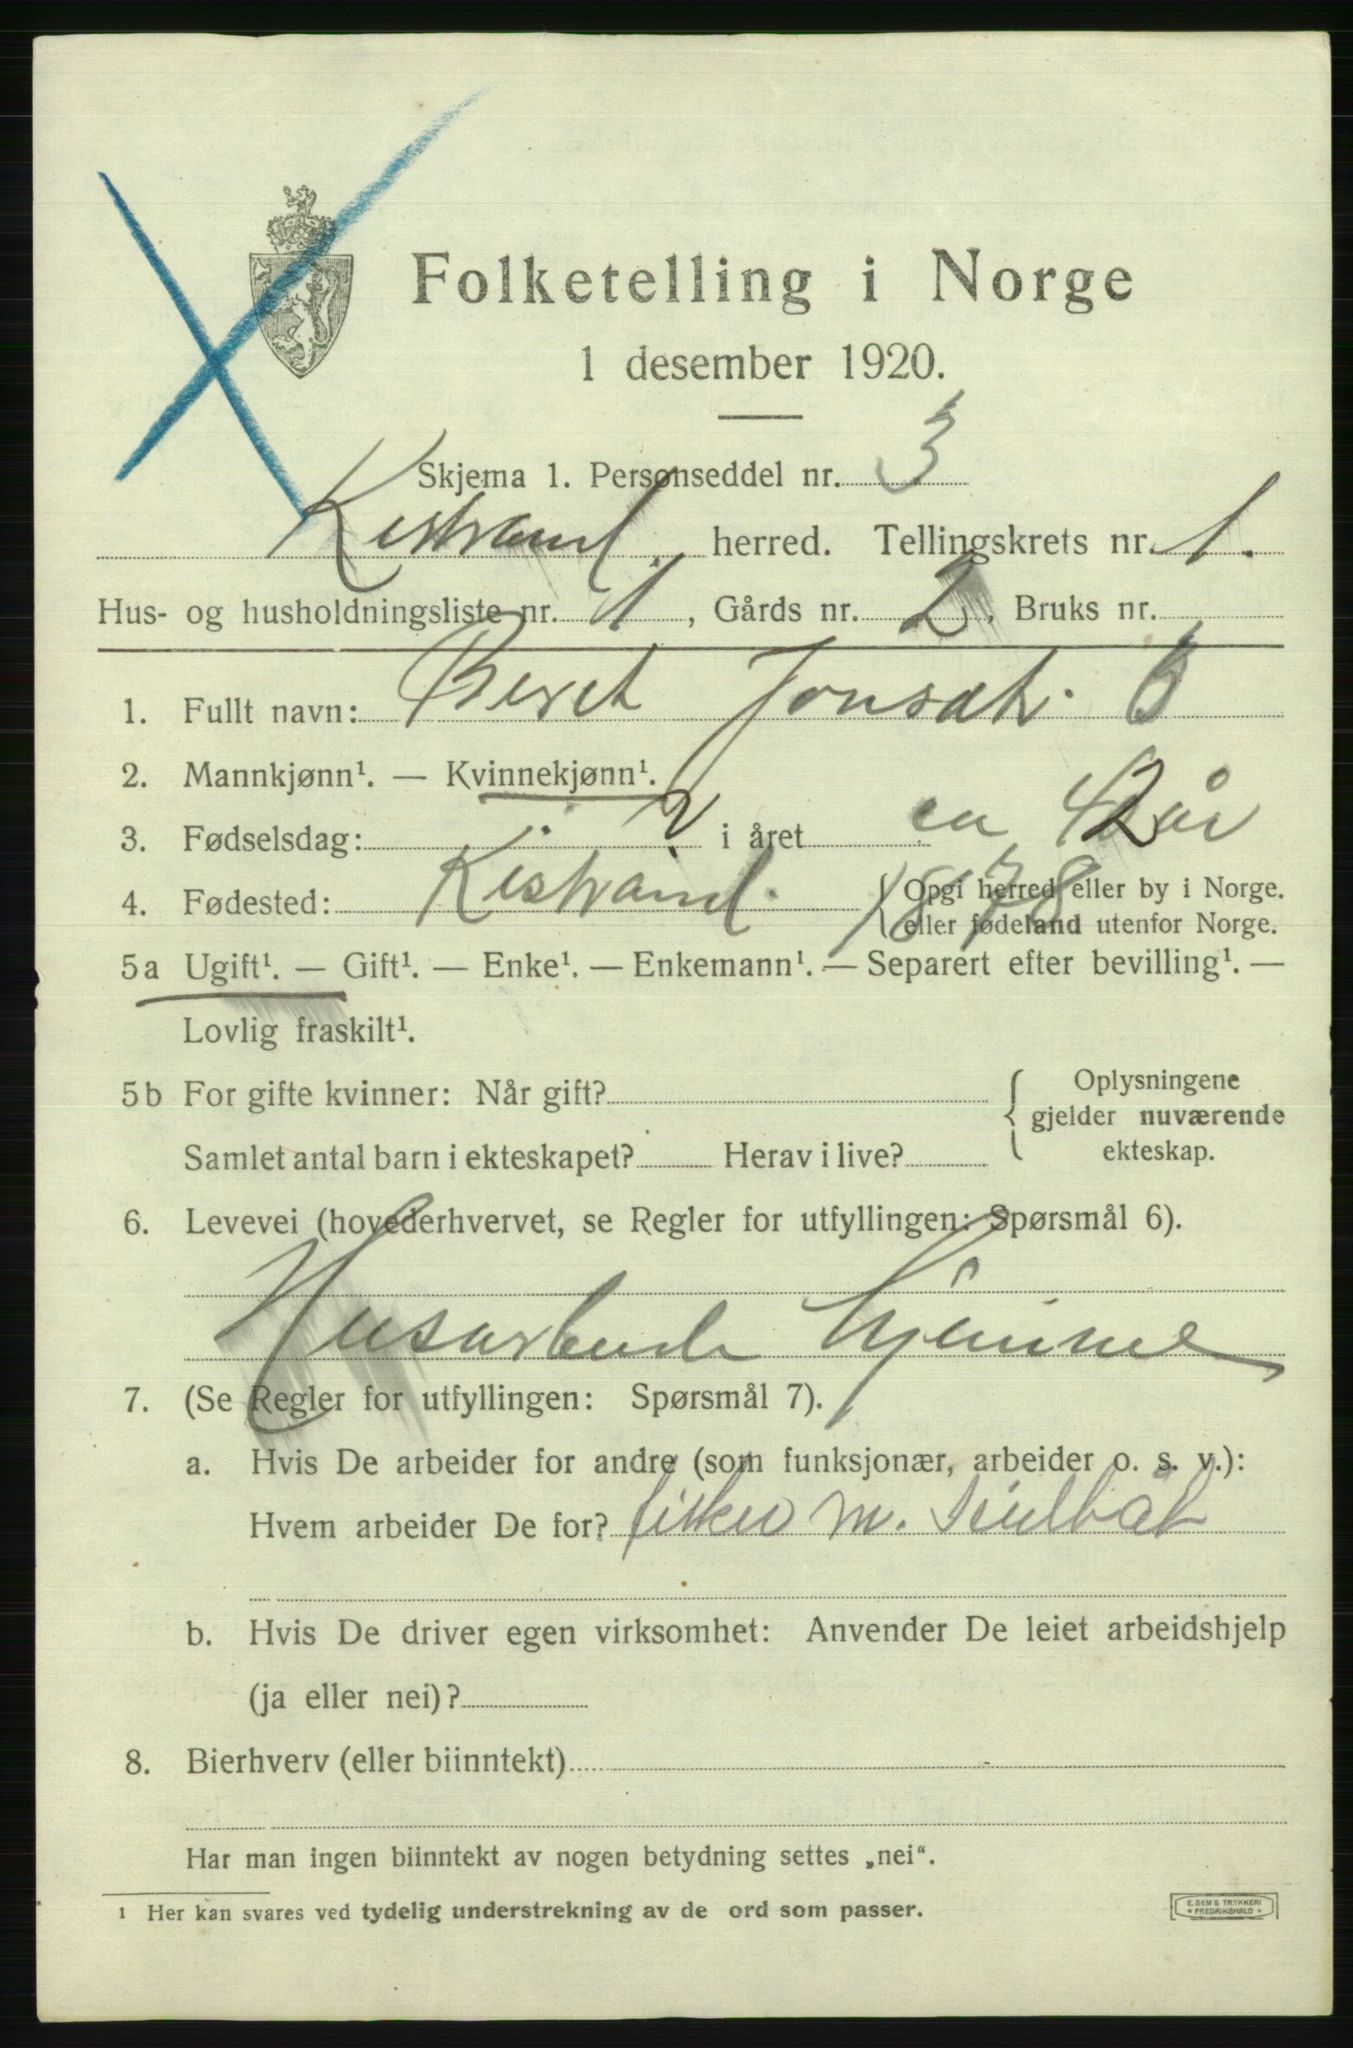 Folketelling i Norge
1 desember 1920.
Skjema 1. Personseddel nr. 3
Kistrand. herred. Tellingskrets nr. 1.
Hus- og husholdningsliste nr. 1, Gårds nr. 2, Bruks nr.
1. Fullt navn: Beret Jonsdtr. B
2. Mannkjønn¹. — Kvinnekjønn¹.
3. Fødselsdag: ? i året ca 42 år
1878
4. Fødested: Kistrand. { Opgi herred eller by i Norge.
eller fødeland utenfor Norge.
5a Ugift¹. — Gift¹. — Enke¹. — Enkemann¹. — Separert efter bevilling¹. —
Lovlig fraskilt¹.
5b For gifte kvinner: Når gift? { Oplysningene
gjelder nuværende
Samlet antal barn i ekteskapet? Herav i live? ekteskap.
6. Levevei (hovederhvervet, se Regler for utfyllingen: Spørsmål 6).
Husarbeide hjemme
7. (Se Regler for utfyllingen: Spørsmål 7).
a. Hvis De arbeider for andre (som funksjonær, arbeider o. s. v.):
Hvem arbeider De for? fisker m.
b. Hvis De driver egen virksomhet: Anvender De leiet arbeidshjelp
(ja eller nei)?
8. Bierhverv (eller biinntekt)
Har man ingen biinntekt av nogen betydning settes „nei“.
¹ Her kan svares ved tydelig understrekning av de ord som passer.
E. SEM'S TRYKKERI
* FREDRIKSHALD *